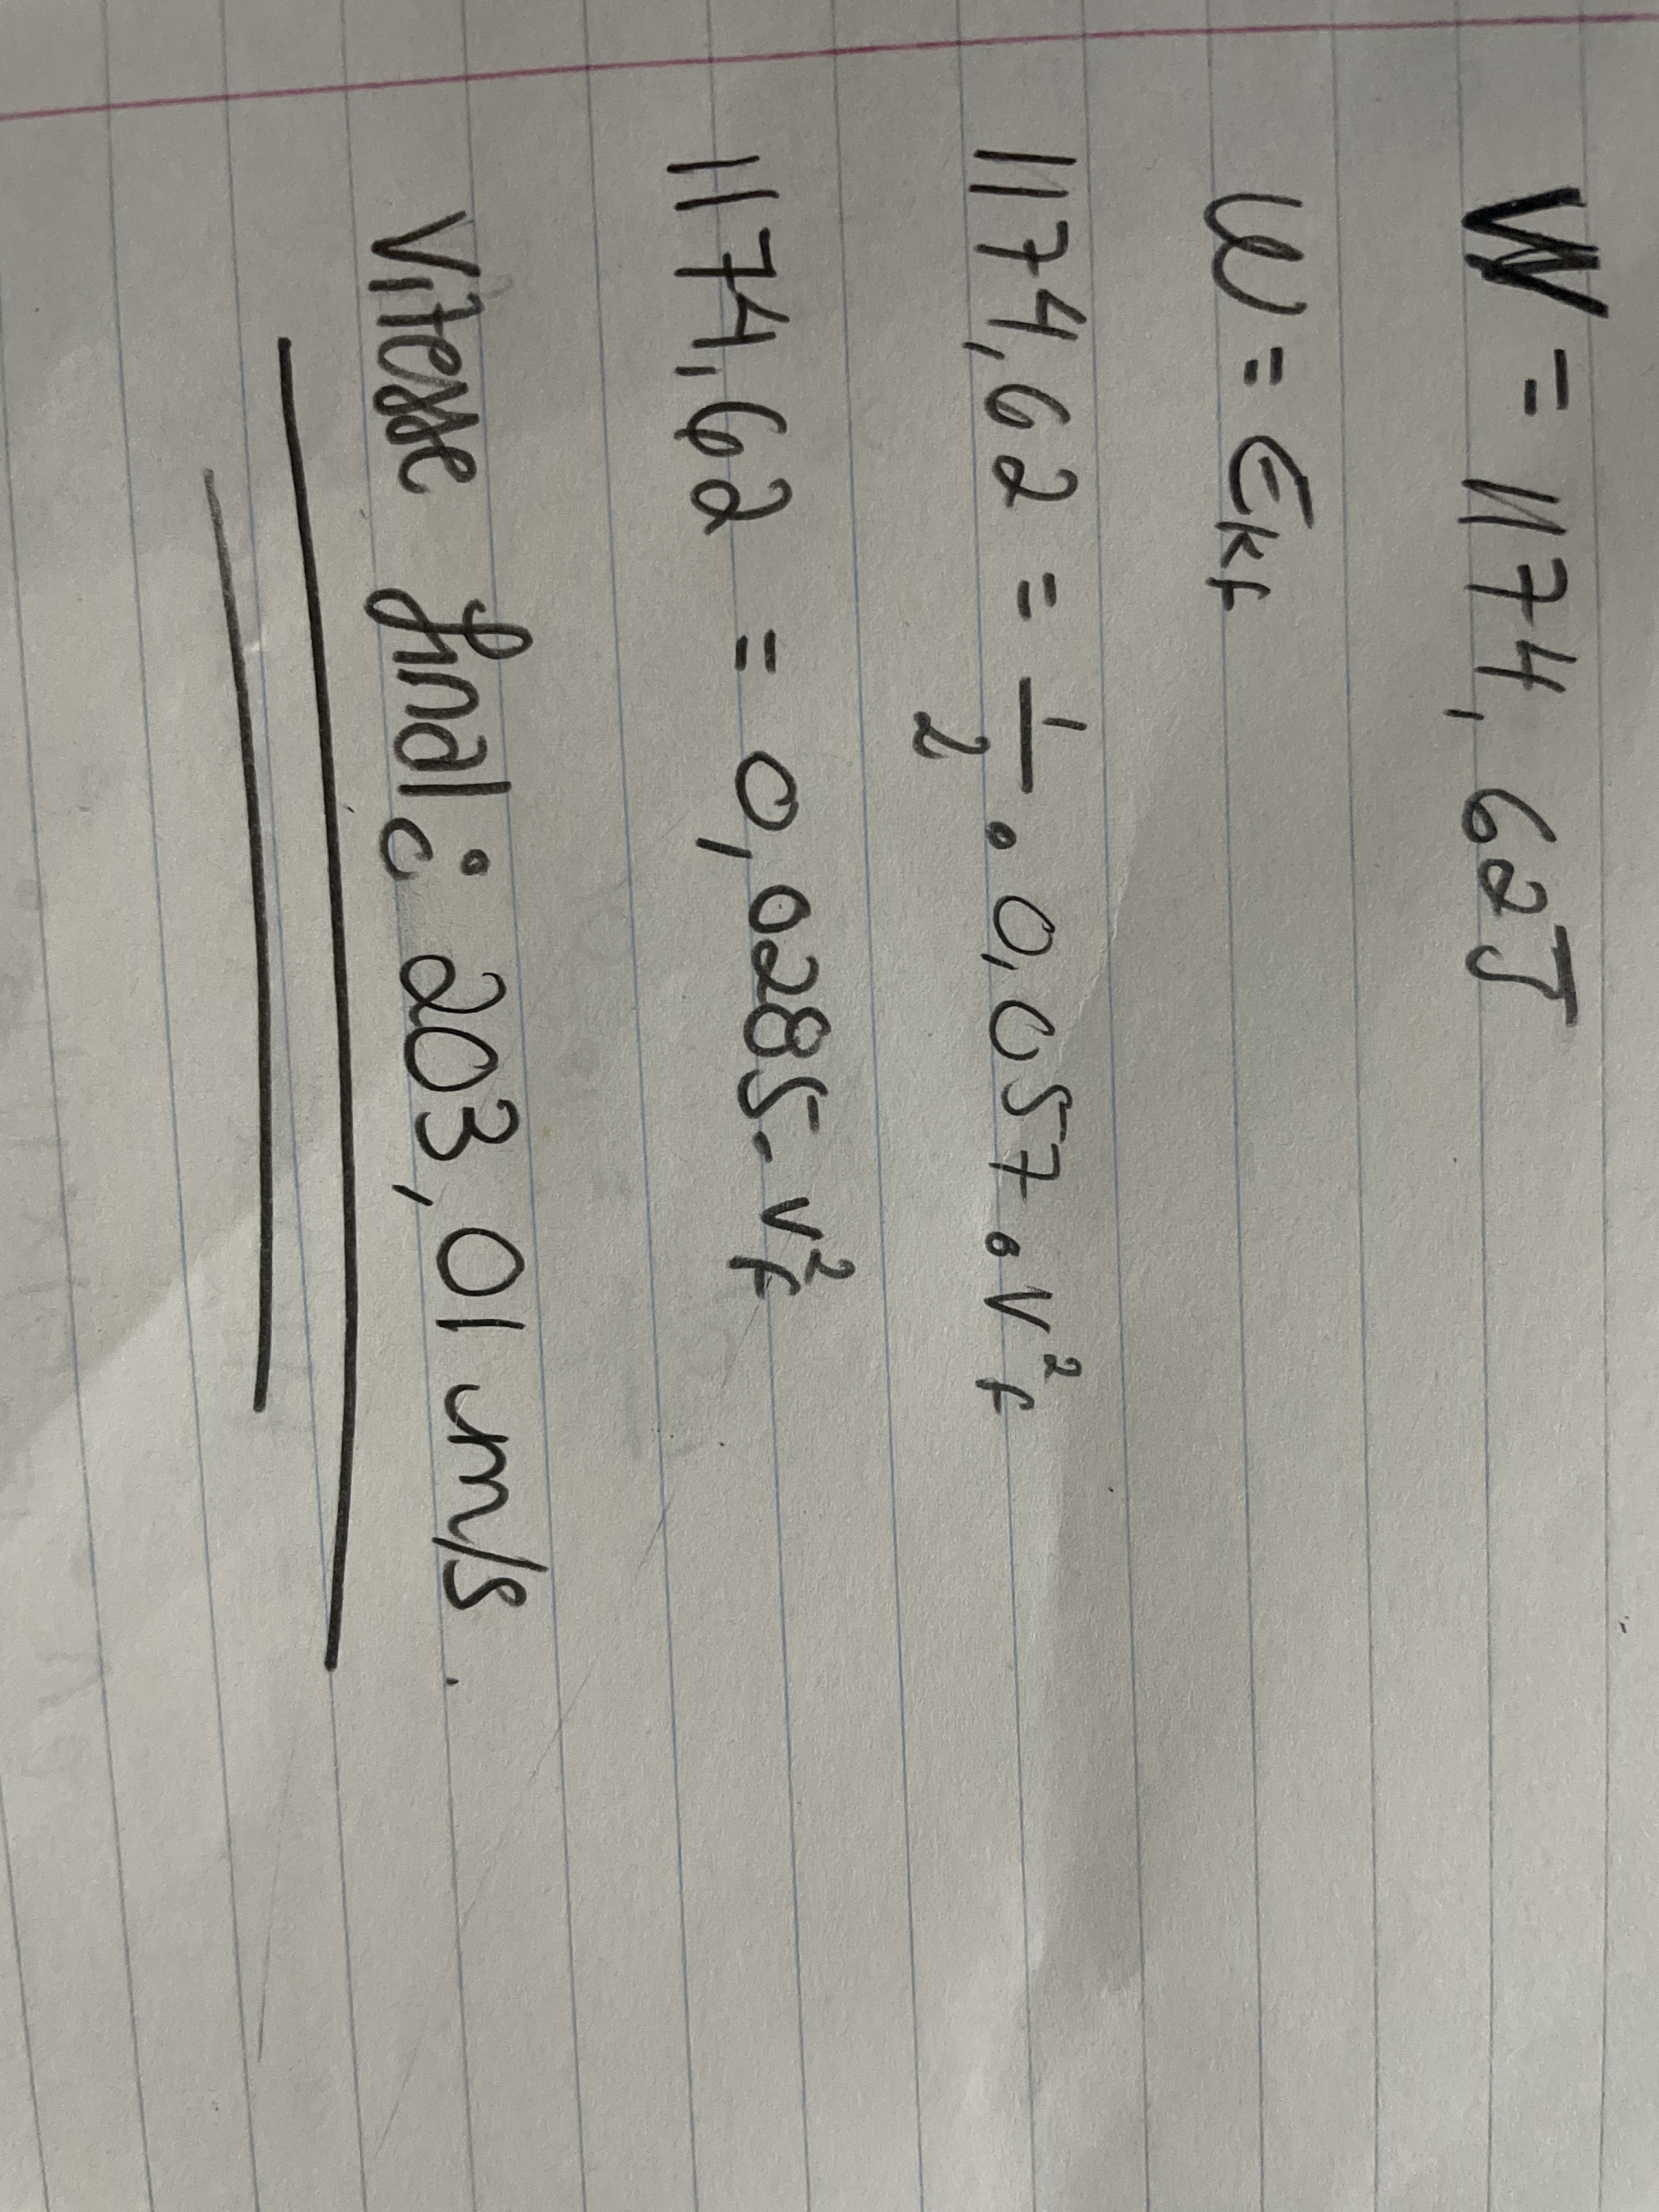 W = 1174,62J
W = Ekf
1174,62 = 1/2 . 0,057 . v²f
1174,62 = 0,0285 . v²f
Vitesse final : 203,01 m/s.